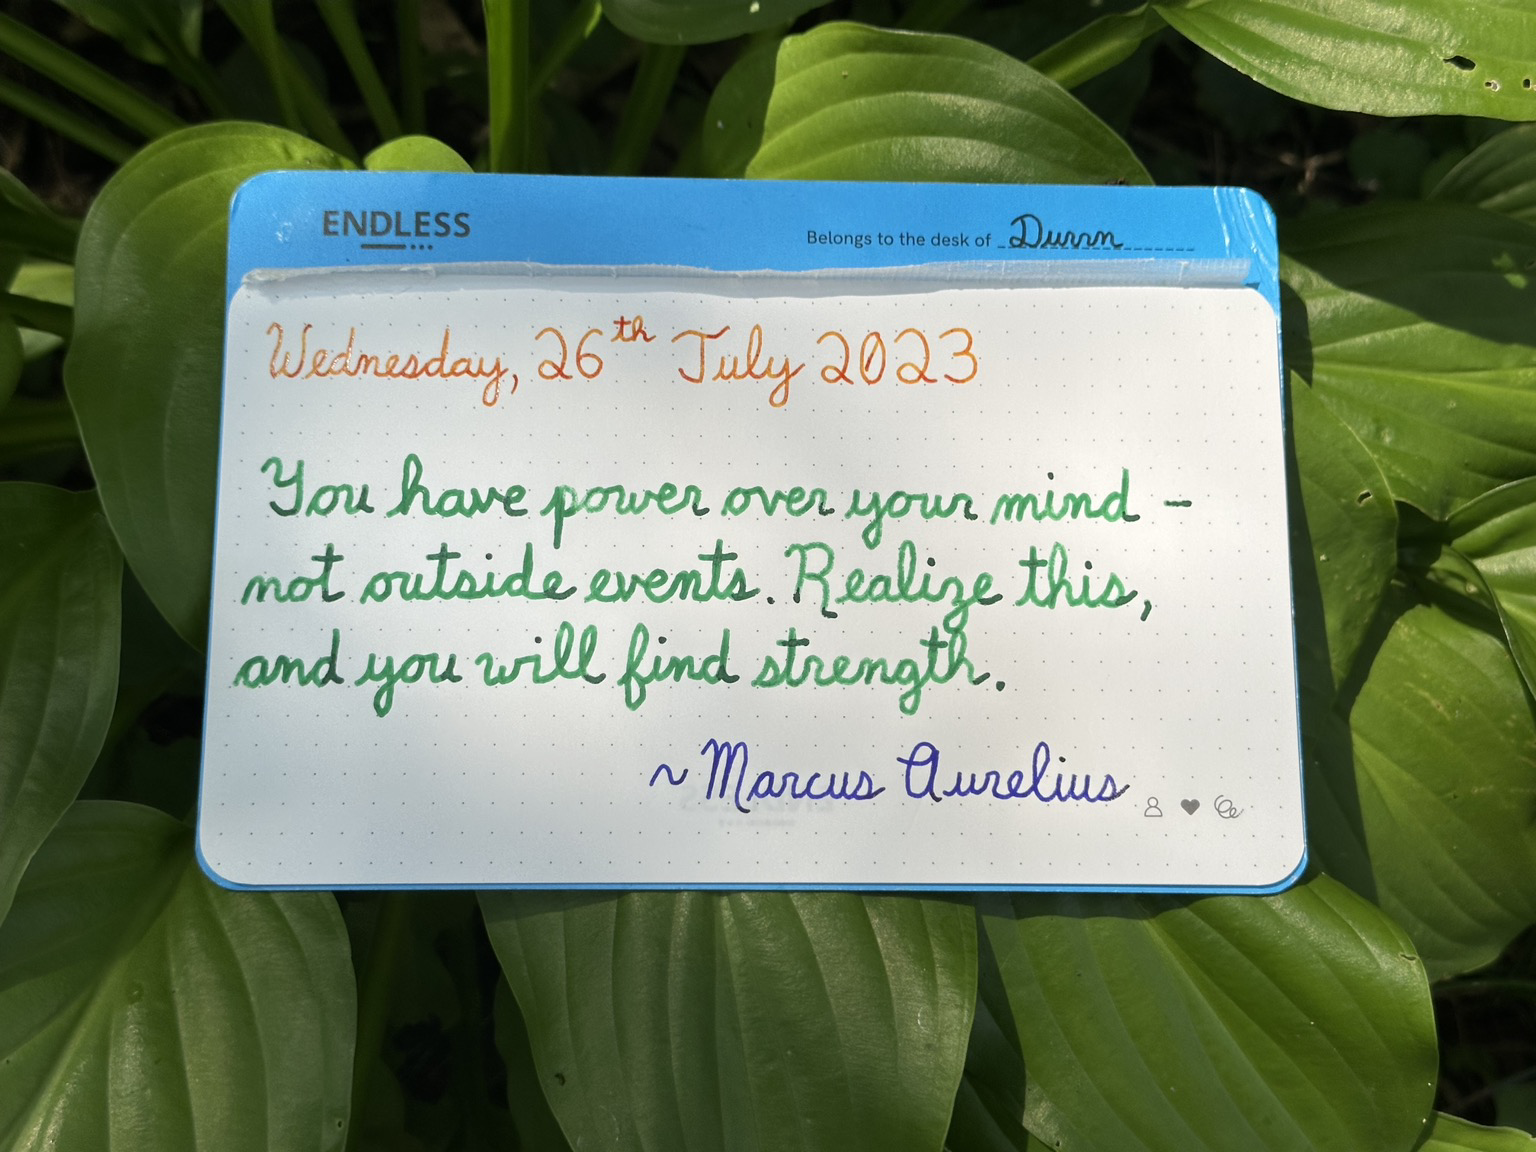 ENDLESS
Belongs to the desk of Durrn
Wednesday, 26th July 2023
You have power over your mind -
not outside events. Realize this,
and you will find strength.
~Marcus Aurelius